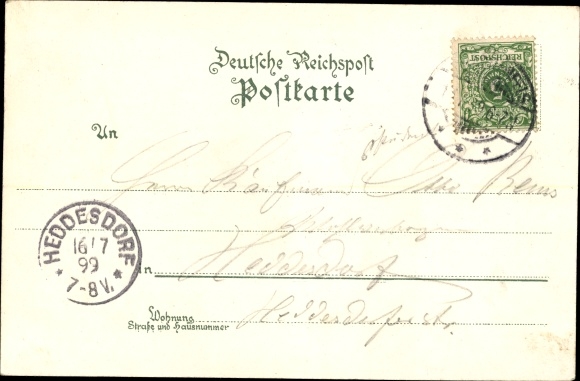 Deutsche Reichspost
Postkarte
REICHSPOST
An
Herrn Kaufmann Otto
HEDDESDORF
16/7
99
7-8V.
In Heddesdorf
Wohnung
Straße und Hausnummer
Heddesdorferstr.